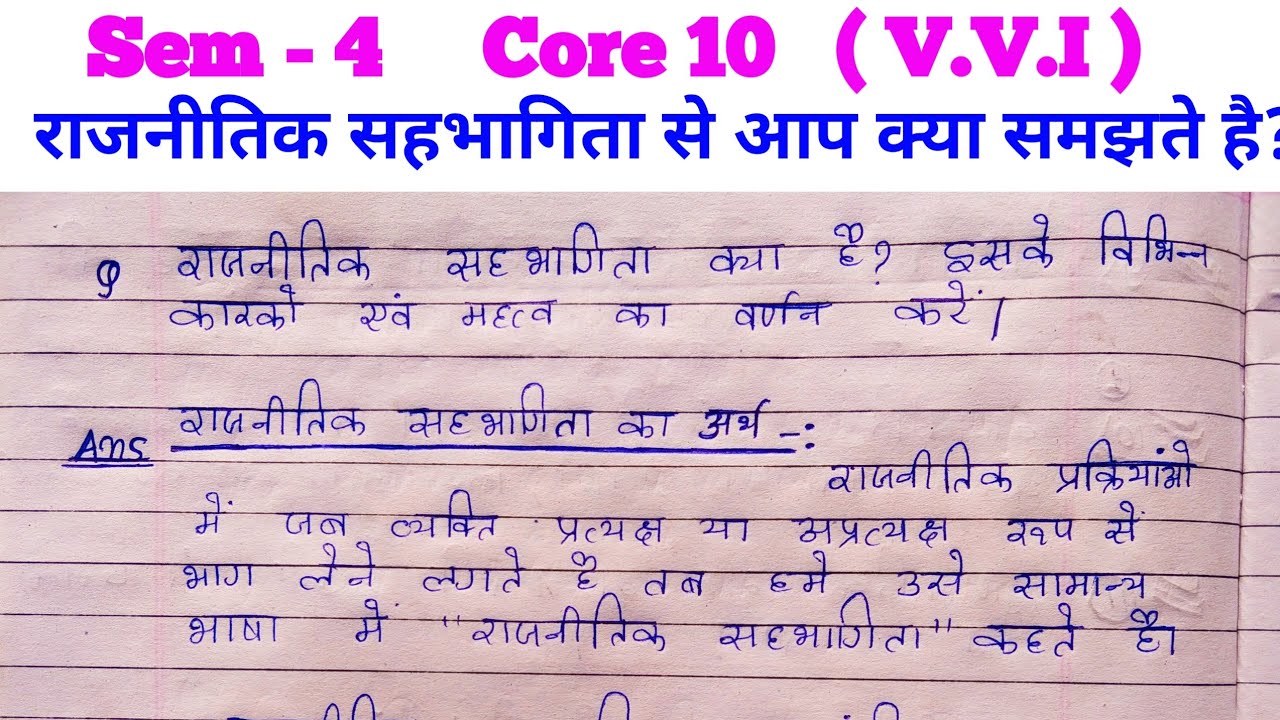 Sem - 4 Core 10 ( V.V.I )
राजनीतिक सहभागिता से आप क्या समझते है?
Q राजनीतिक सहभागिता क्या है? इसके विभिन्न
कारको एवं महत्व का वर्णन करें।
Ans राजनीतिक सहभागिता का अर्थ -:
राजनीतिक प्रक्रियांओ
में जब व्यक्ति प्रत्यक्ष या अप्रत्यक्ष रूप सें
भाग लेने लगते है तब हमे उसे सामान्य
भाषा में "राजनीतिक सहभागिता" कहते है।